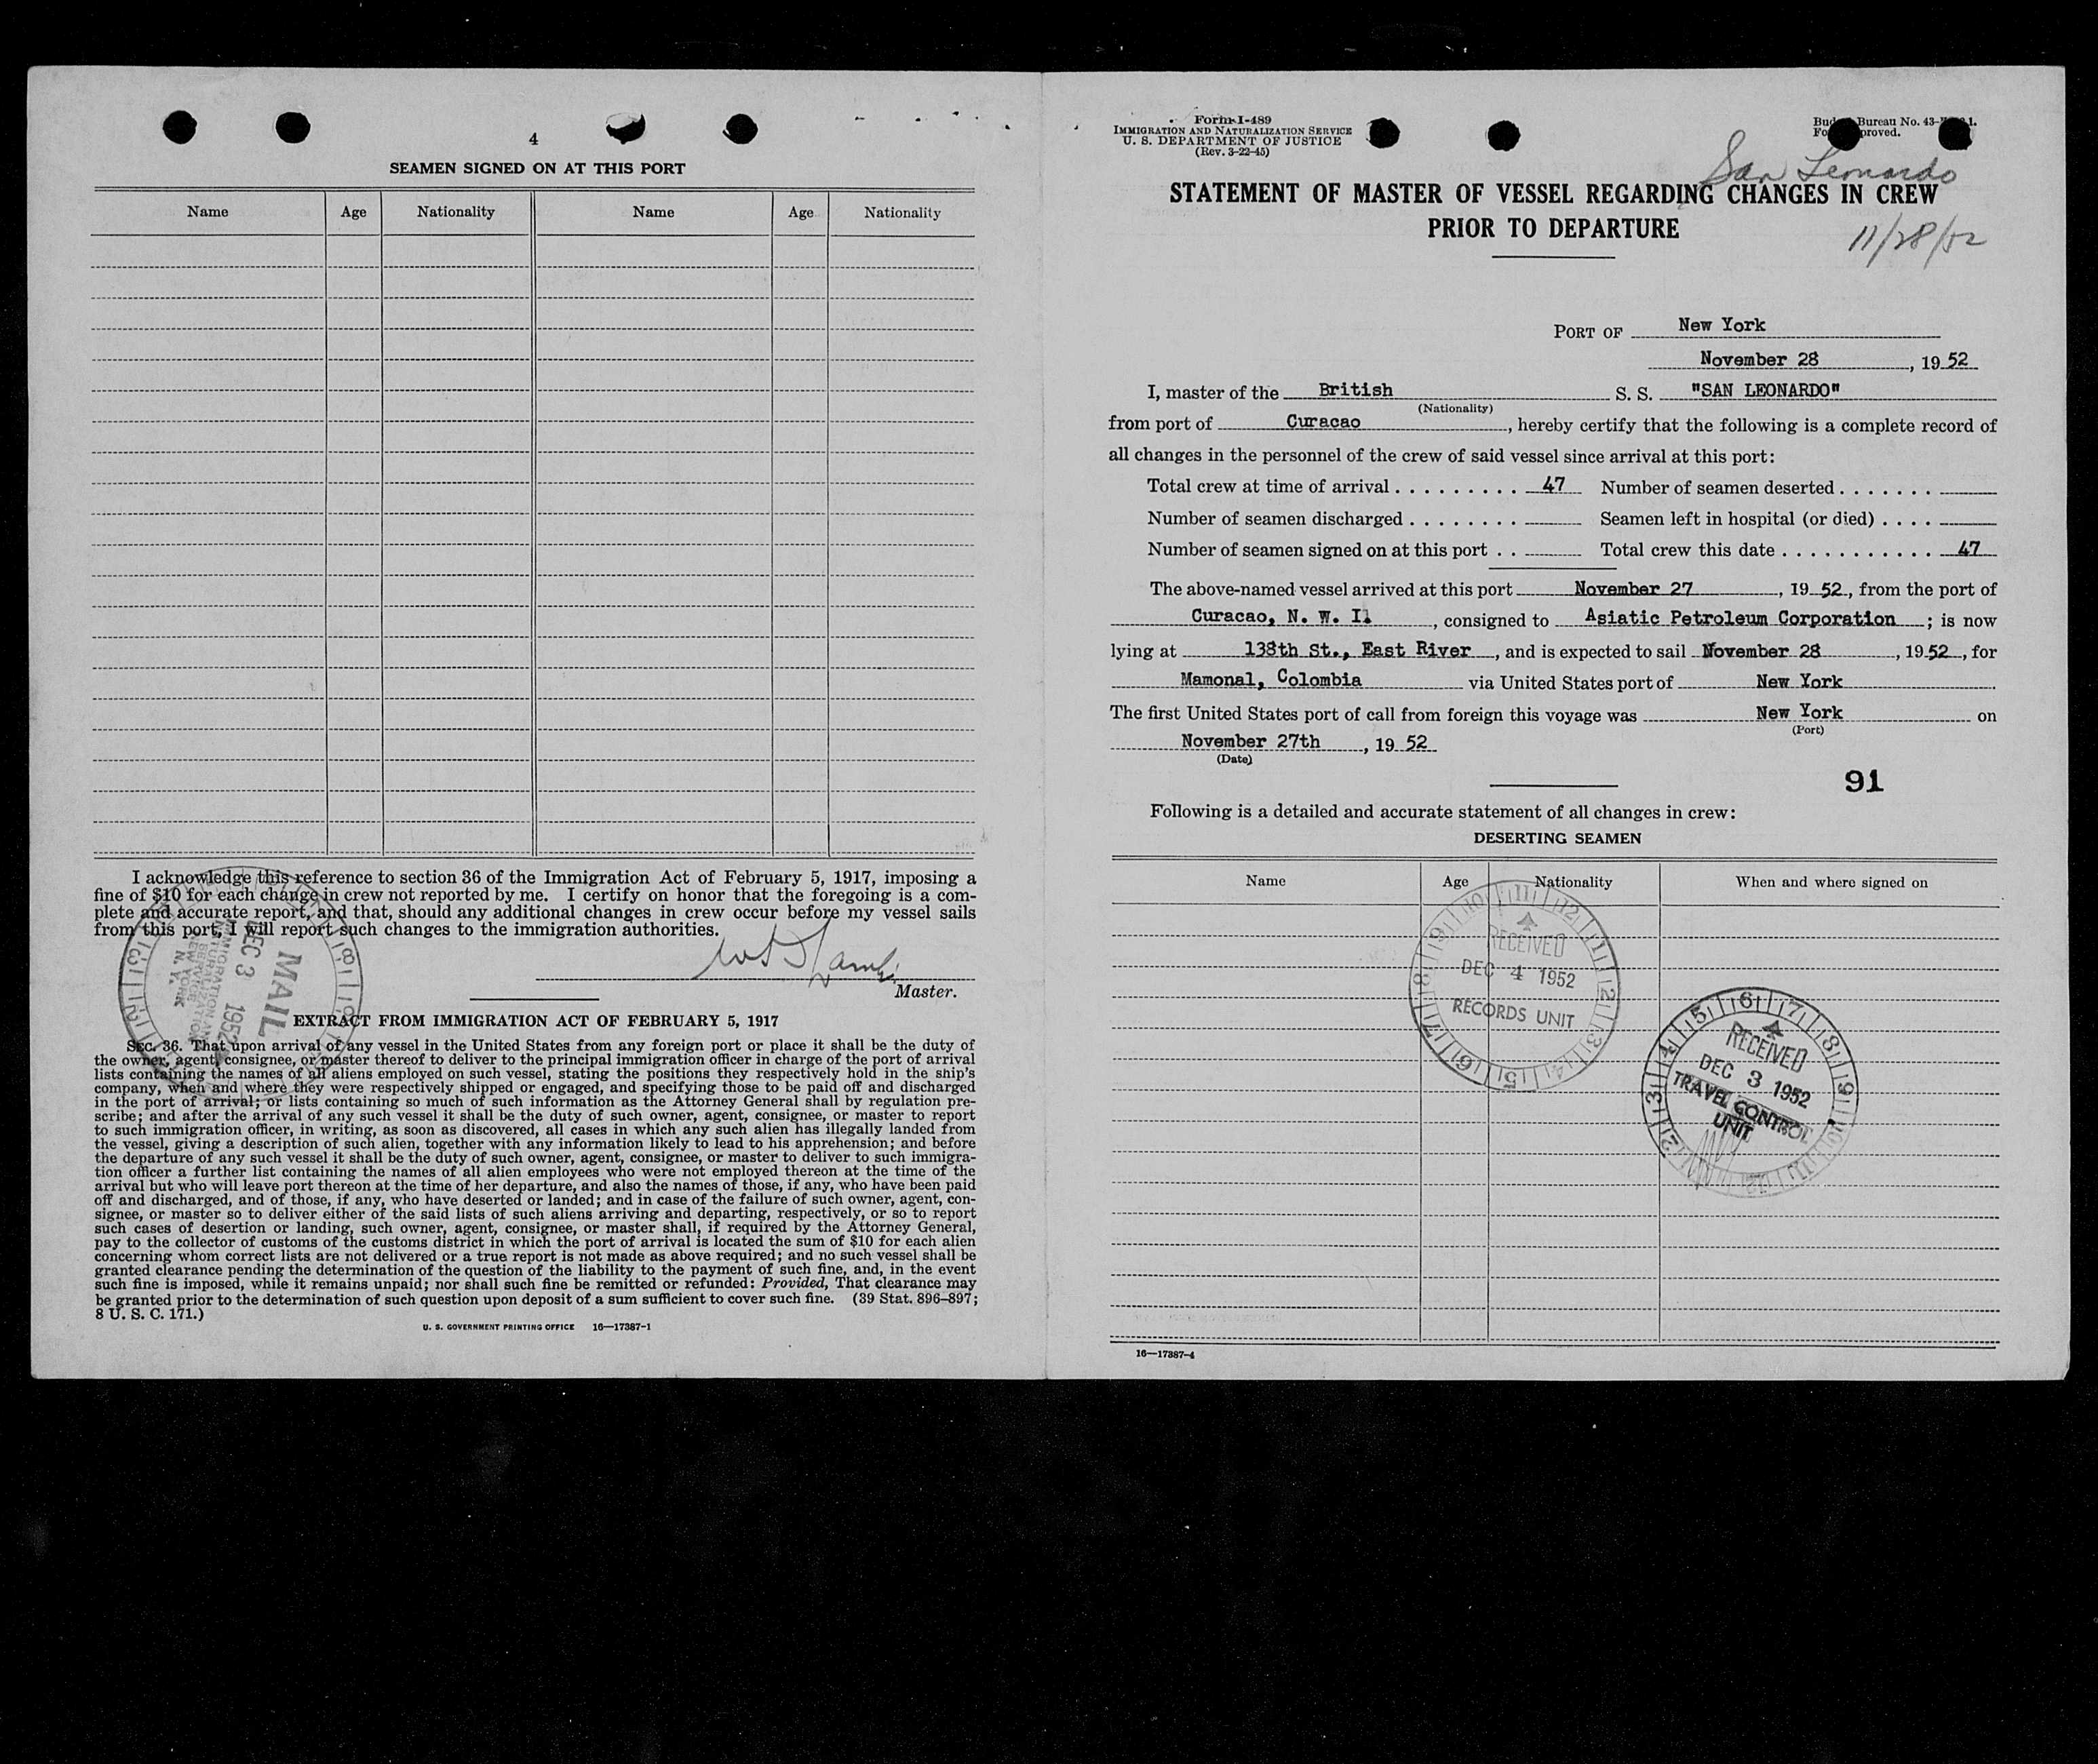 4
SEAMEN SIGNED ON AT THIS PORT
Name Age Nationality Name Age Nationality
I acknowledge this reference to section 36 of the Immigration Act of February 5, 1917, imposing a
fine of $10 for each change in crew not reported by me. I certify on honor that the foregoing is a com-
plete and accurate report, and that, should any additional changes in crew occur before my vessel sails
from this port, I will report such changes to the immigration authorities.
Master.
MAIL
DEC 3 1952
IMMIGRATION AND
NATURALIZATION
SERVICE
NEW YORK
N. Y.
EXTRACT FROM IMMIGRATION ACT OF FEBRUARY 5, 1917
SEC. 36. That upon arrival of any vessel in the United States from any foreign port or place it shall be the duty of
the owner, agent, consignee, or master thereof to deliver to the principal immigration officer in charge of the port of arrival
lists containing the names of all aliens employed on such vessel, stating the positions they respectively hold in the ship's
company, when and where they were respectively shipped or engaged, and specifying those to be paid off and discharged
in the port of arrival; or lists containing so much of such information as the Attorney General shall by regulation pre-
scribe; and after the arrival of any such vessel it shall be the duty of such owner, agent, consignee, or master to report
to such immigration officer, in writing, as soon as discovered, all cases in which any such alien has illegally landed from
the vessel, giving a description of such alien, together with any information likely to lead to his apprehension; and before
the departure of any such vessel it shall be the duty of such owner, agent, consignee, or master to deliver to such immigra-
tion officer a further list containing the names of all alien employees who were not employed thereon at the time of the
arrival but who will leave port thereon at the time of her departure, and also the names of those, if any, who have been paid
off and discharged, and of those, if any, who have deserted or landed; and in case of the failure of such owner, agent, con-
signee, or master so to deliver either of the said lists of such aliens arriving and departing, respectively, or so to report
such cases of desertion or landing, such owner, agent, consignee, or master shall, if required by the Attorney General,
pay to the collector of customs of the customs district in which the port of arrival is located the sum of $10 for each alien
concerning whom correct lists are not delivered or a true report is not made as above required; and no such vessel shall be
granted clearance pending the determination of the question of the liability to the payment of such fine, and, in the event
such fine is imposed, while it remains unpaid; nor shall such fine be remitted or refunded: Provided, That clearance may
be granted prior to the determination of such question upon deposit of a sum sufficient to cover such fine. (39 Stat. 896–897;
8 U. S. C. 171.)
U. S. GOVERNMENT PRINTING OFFICE 16—17387-1
Form I-489
IMMIGRATION AND NATURALIZATION SERVICE
U. S. DEPARTMENT OF JUSTICE
(Rev. 3-22-45)
Bureau No. 43-
San Leonardo
STATEMENT OF MASTER OF VESSEL REGARDING CHANGES IN CREW
PRIOR TO DEPARTURE
11/28/52
PORT OF New York
November 28, 1952
I, master of the British S. S. "SAN LEONARDO"
(Nationality)
from port of Curacao, hereby certify that the following is a complete record of
all changes in the personnel of the crew of said vessel since arrival at this port:
Total crew at time of arrival . . . . . . . . . 47 Number of seamen deserted . . . . . . .
Number of seamen discharged . . . . . . . . Seamen left in hospital (or died) . . . .
Number of seamen signed on at this port . . Total crew this date . . . . . . . . . . . 47
The above-named vessel arrived at this port November 27, 1952, from the port of
Curacao, N. W. I., consigned to Asiatic Petroleum Corporation; is now
lying at 138th St., East River, and is expected to sail November 28, 1952, for
Mamonal, Colombia via United States port of New York.
The first United States port of call from foreign this voyage was New York on
(Port)
November 27th, 19 52
(Date)
91
Following is a detailed and accurate statement of all changes in crew:
DESERTING SEAMEN
Name Age Nationality When and where signed on
RECEIVED
DEC 4 1952
RECORDS UNIT
RECEIVED
DEC 3 1952
TRAVEL CONTROL
UNIT
16—17387-4